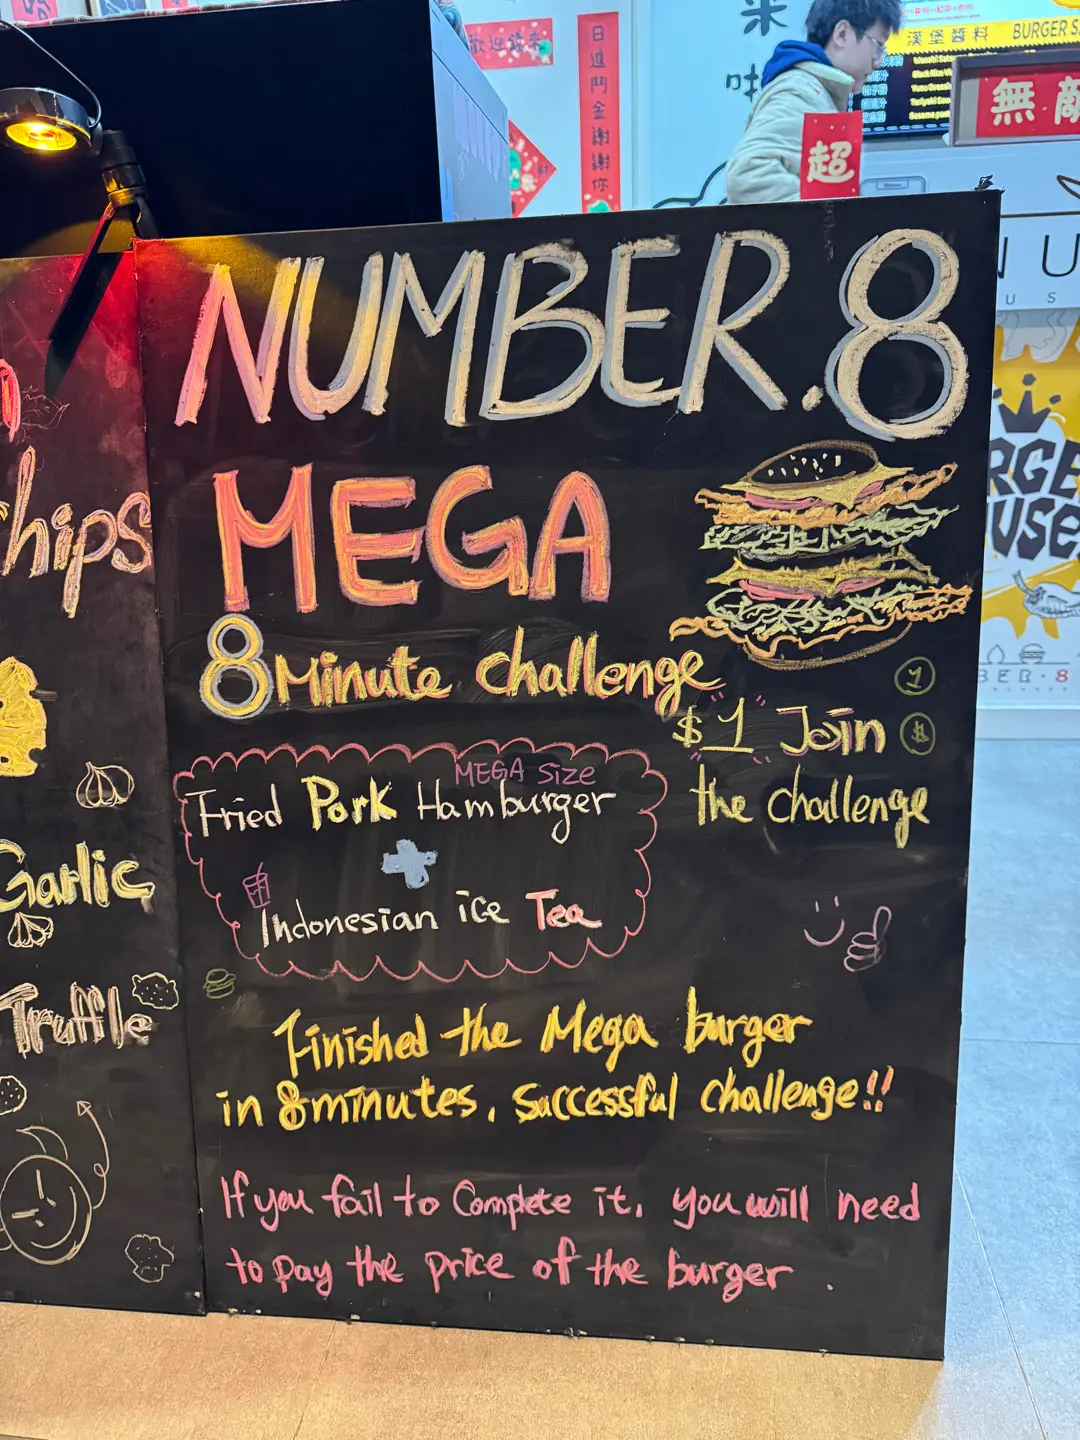 歡迎錢來
日進鬥金謝謝你
來
啦
超
漢堡醬料 BURGER S
無敵
NU
US
NUMBER.8
MEGA
8 Minute challenge
$"1" Join
the challenge
1
$
MEGA Size
Fried Pork Hamburger
Indonesian ice Tea
Finished the Mega burger
in 8 minutes, successful challenge!!
If you fail to Complete it, you will need
to pay the price of the burger.
hips
Garlic
Truffle
RGE
USE
BER·8